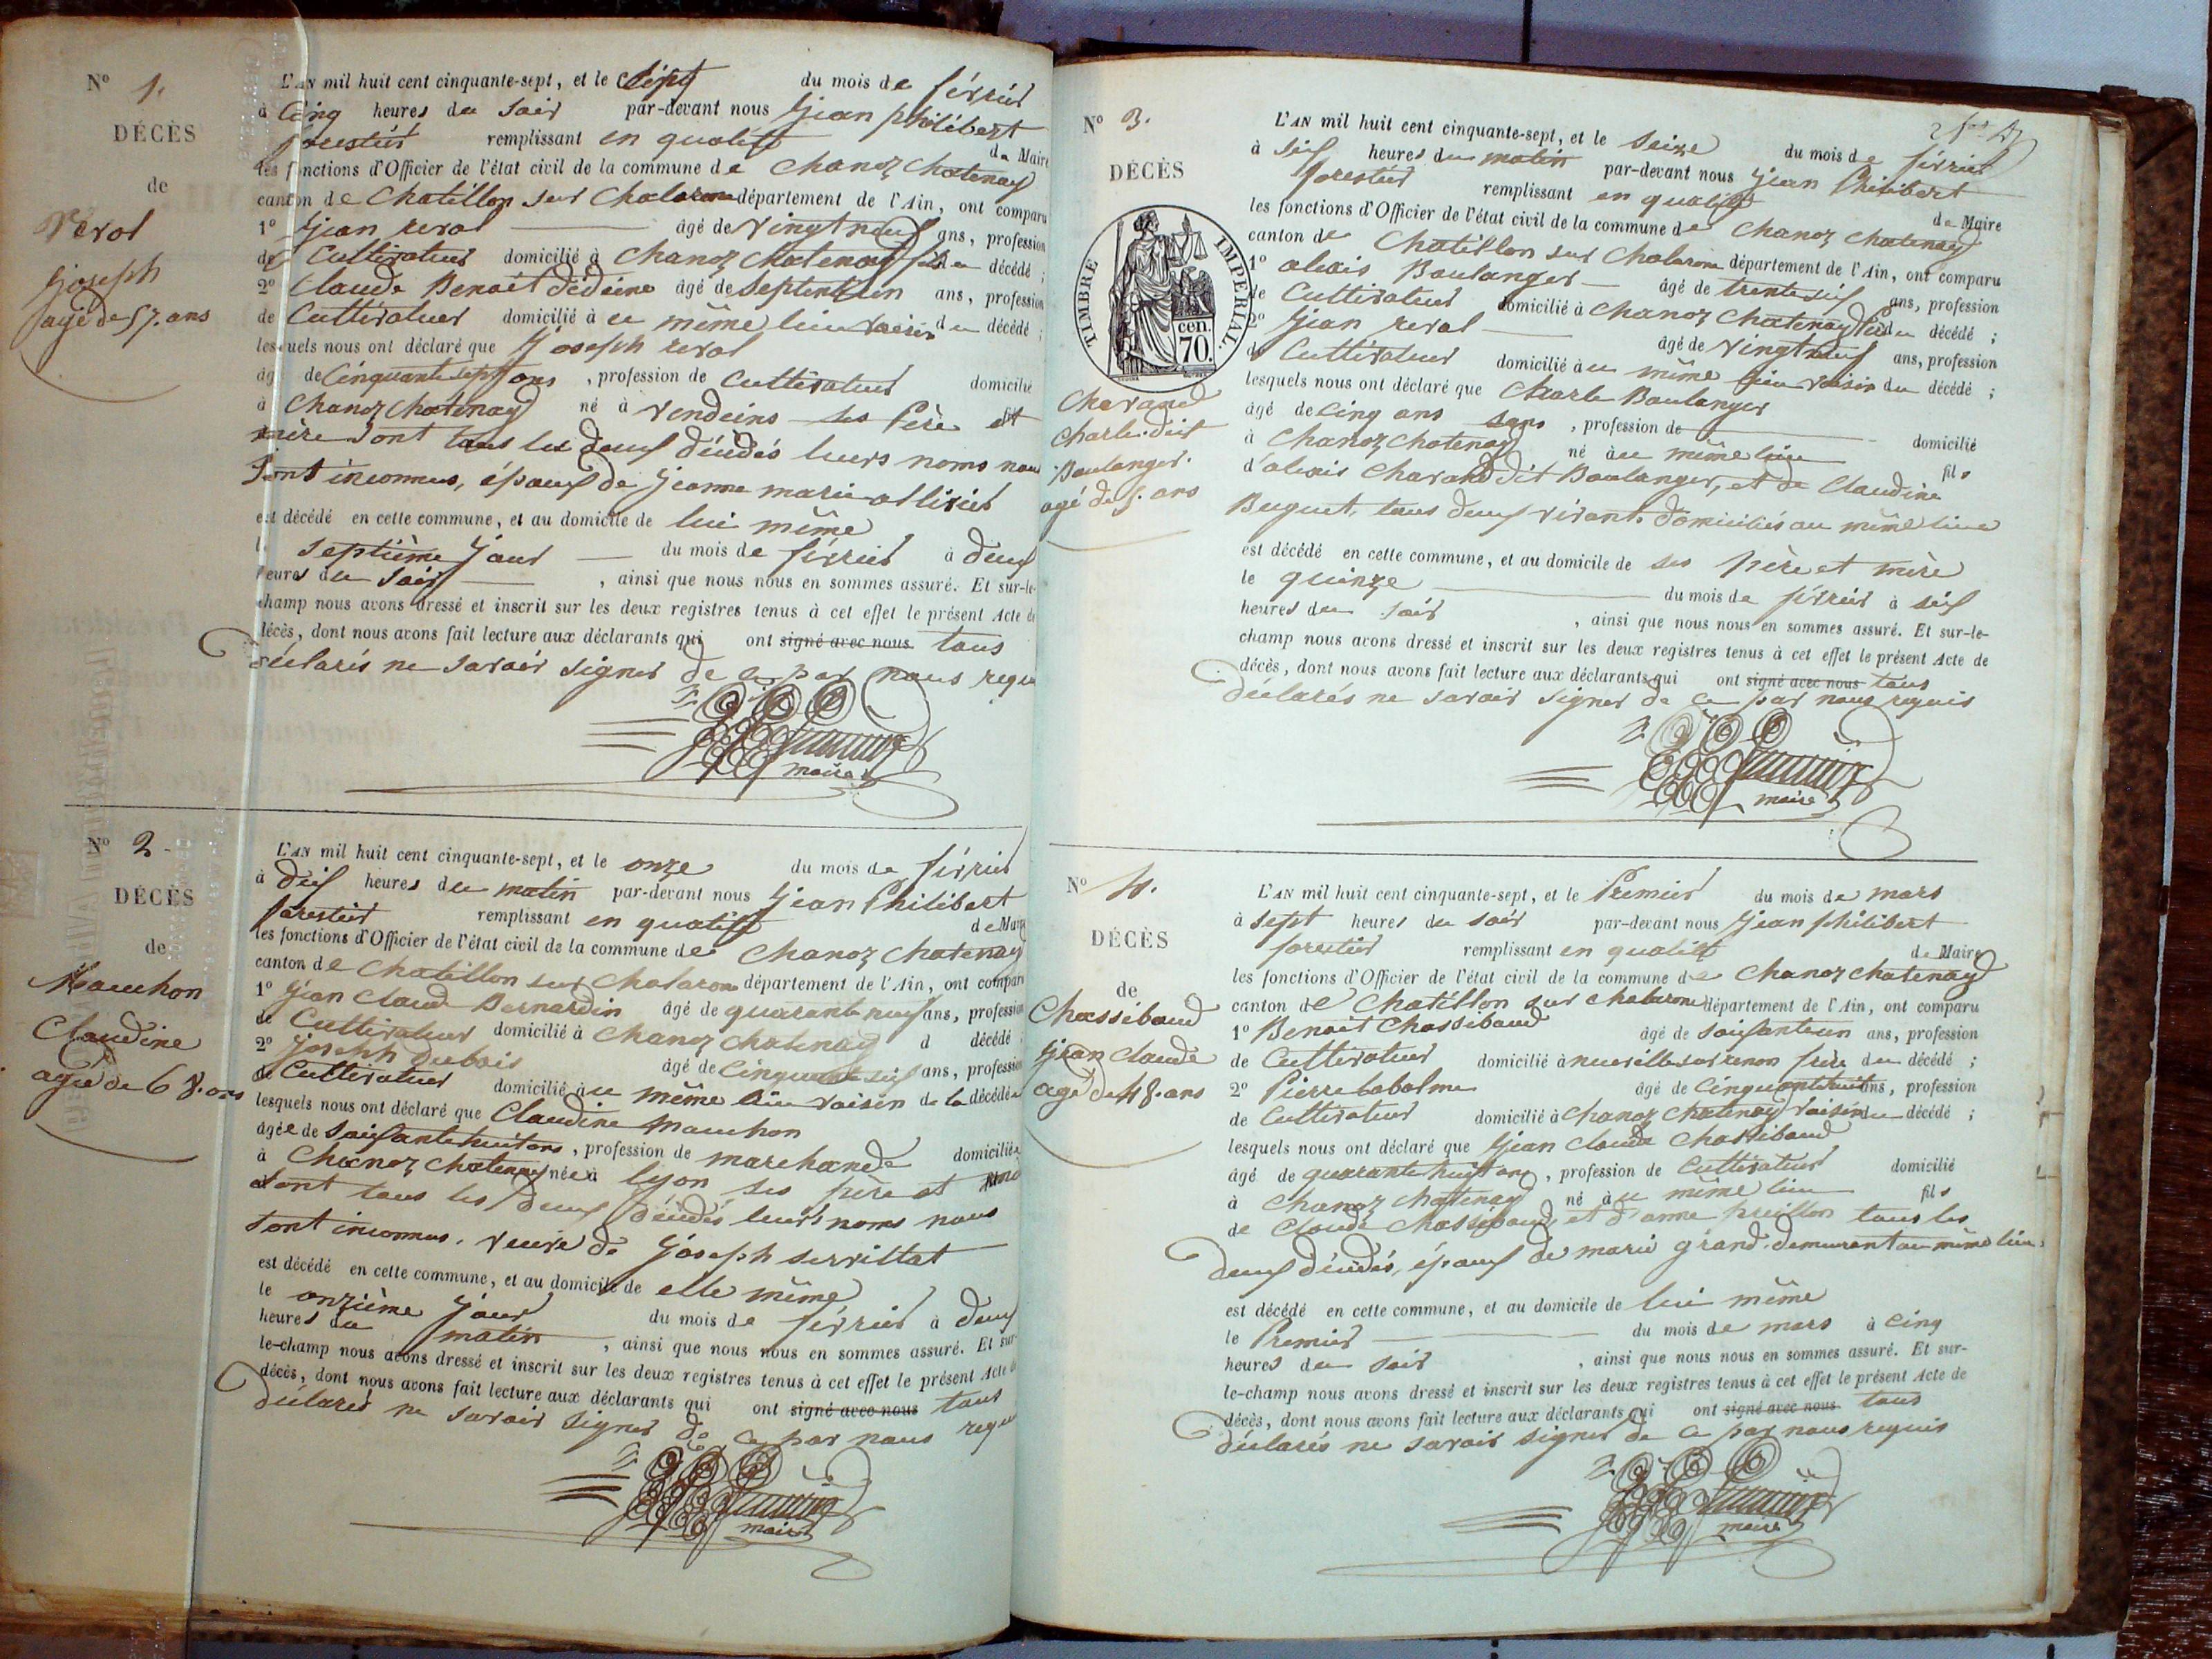 N° 1.
DÉCÈS
de
Reval
Joseph
agé de 57. ans
L'AN mil huit cent cinquante-sept, et le sept du mois de février
à Cinq heures du soir par-devant nous Jean philibert
forestier remplissant en qualité de Maire
les fonctions d'Officier de l'état civil de la commune de Chanoz Chatenay
canton de Chatillon sur Chalaronne département de l'Ain, ont comparu
1° Jean reval âgé de vingt neuf ans, profession
de Cultivateur domicilié à Chanoz Chatenay fils du décédé ;
2° Claude Benoit dédeine âgé de septente un ans, profession
de Cultivateur domicilié à ce même lieu voisin du décédé ;
lesquels nous ont déclaré que Joseph reval
âgé de Cinquante sept ans , profession de Cultivateur domicilié
à Chanoz Chatenay né à vendeins ses Père et
mère sont tous les deux décédés leurs noms nous
sont inconnus, époux de Jeanne marie ollivier
est décédé en cette commune, et au domicile de lui même
le septième jour du mois de février à deux
heures du soir , ainsi que nous nous en sommes assuré. Et sur-le-
champ nous avons dressé et inscrit sur les deux registres tenus à cet effet le présent Acte de
décès, dont nous avons fait lecture aux déclarants qui ont signé avec nous tous
déclarés ne savoir signer de ce par nous requis
maire
N° 2
DÉCÈS
de
Mauchon
Claudine
agée de 68. ans
L'AN mil huit cent cinquante-sept, et le onze du mois de février
à dix heures du matin par-devant nous Jean Philibert
forestier remplissant en qualité de Maire
les fonctions d'Officier de l'état civil de la commune de Chanoz Chatenay
canton de Chatillon sur Chalaronne département de l'Ain, ont comparu
1° Jean Claude Bernardin âgé de quarante neuf ans, profession
de Cultivateur domicilié à Chanoz Chatenay d décédé ;
2° Joseph Dubois âgé de Cinquante six ans, profession
de Cultivateur domicilié à ce même lieu voisin de la décédée
lesquels nous ont déclaré que Claudine Mauchon
âgée de soixante huit ans , profession de marchande domiciliée
à Chanoz Chatenay née à lyon ses père et mère
sont tous les deux décédés leurs noms nous
sont inconnus. veuve de Joseph servillat
est décédé en cette commune, et au domicile de elle même
le onzième jour du mois de février à deux
heures du matin , ainsi que nous nous en sommes assuré. Et sur-
le-champ nous avons dressé et inscrit sur les deux registres tenus à cet effet le présent Acte de
décès, dont nous avons fait lecture aux déclarants qui ont signé avec nous tous
déclarés ne savoir signer de ce par nous requis
maire
N° 3.
DÉCÈS
TIMBRE IMPÉRIAL.
cen.
70.
Chavand
Charle. dit
Boulanger.
agé de 5. ans
L'AN mil huit cent cinquante-sept, et le seize du mois de février
à six heures du matin par-devant nous Jean Philibert
forestier remplissant en qualité de Maire
les fonctions d'Officier de l'état civil de la commune de Chanoz Chatenay
canton de Chatillon sur Chalaronne département de l'Ain, ont comparu
1° alexis Boulanger âgé de trente six ans, profession
de Cultivateur domicilié à Chanoz Chatenay Père du décédé ;
2° Jean reval âgé de vingt neuf ans, profession
de Cultivateur domicilié à ce même lieu voisin du décédé ;
lesquels nous ont déclaré que Charle Boulanger
âgé de cinq ans sans , profession de domicilié
à Chanoz Chatenay né à ce même lieu fils
d'alexis Chavand dit Boulanger, et de Claudine
Buguet, tous deux vivants domiciliés au même lieu
est décédé en cette commune, et au domicile de ses père et mère
le quinze du mois de février à six
heures du soir , ainsi que nous nous en sommes assuré. Et sur-le-
champ nous avons dressé et inscrit sur les deux registres tenus à cet effet le présent Acte de
décès, dont nous avons fait lecture aux déclarants qui ont signé avec nous tous
déclarés ne savoir signer de ce par nous requis
maire
N° 4.
DÉCÈS
de
Chassibaud
Jean Claude
agé de 48. ans
L'AN mil huit cent cinquante-sept, et le Premier du mois de mars
à sept heures du soir par-devant nous Jean philibert
forestier remplissant en qualité de Maire
les fonctions d'Officier de l'état civil de la commune de Chanoz Chatenay
canton de Chatillon sur chalaronne département de l'Ain, ont comparu
1° Benoit Chassibaud âgé de soixante un ans, profession
de Cultivateur domicilié à neuville sur renon frère du décédé ;
2° Pierre Labalme âgé de Cinquante huit ans, profession
de Cultivateur domicilié à Chanoz Chatenay voisin du décédé ;
lesquels nous ont déclaré que Jean Claude Chassibaud
âgé de quarante huit ans , profession de Cultivateur domicilié
à Chanoz Chatenay né à ce même lieu fils
de Claude Chassibaud, et d'anne tous les
deux décédés, époux de marie grand. demeurant au même lieu.
est décédé en cette commune, et au domicile de lui même
le Premier du mois de mars à cinq
heures du soir , ainsi que nous nous en sommes assuré. Et sur-
le-champ nous avons dressé et inscrit sur les deux registres tenus à cet effet le présent Acte de
décès, dont nous avons fait lecture aux déclarants qui ont signé avec nous tous
déclarés ne savoir signer de ce par nous requis
maire